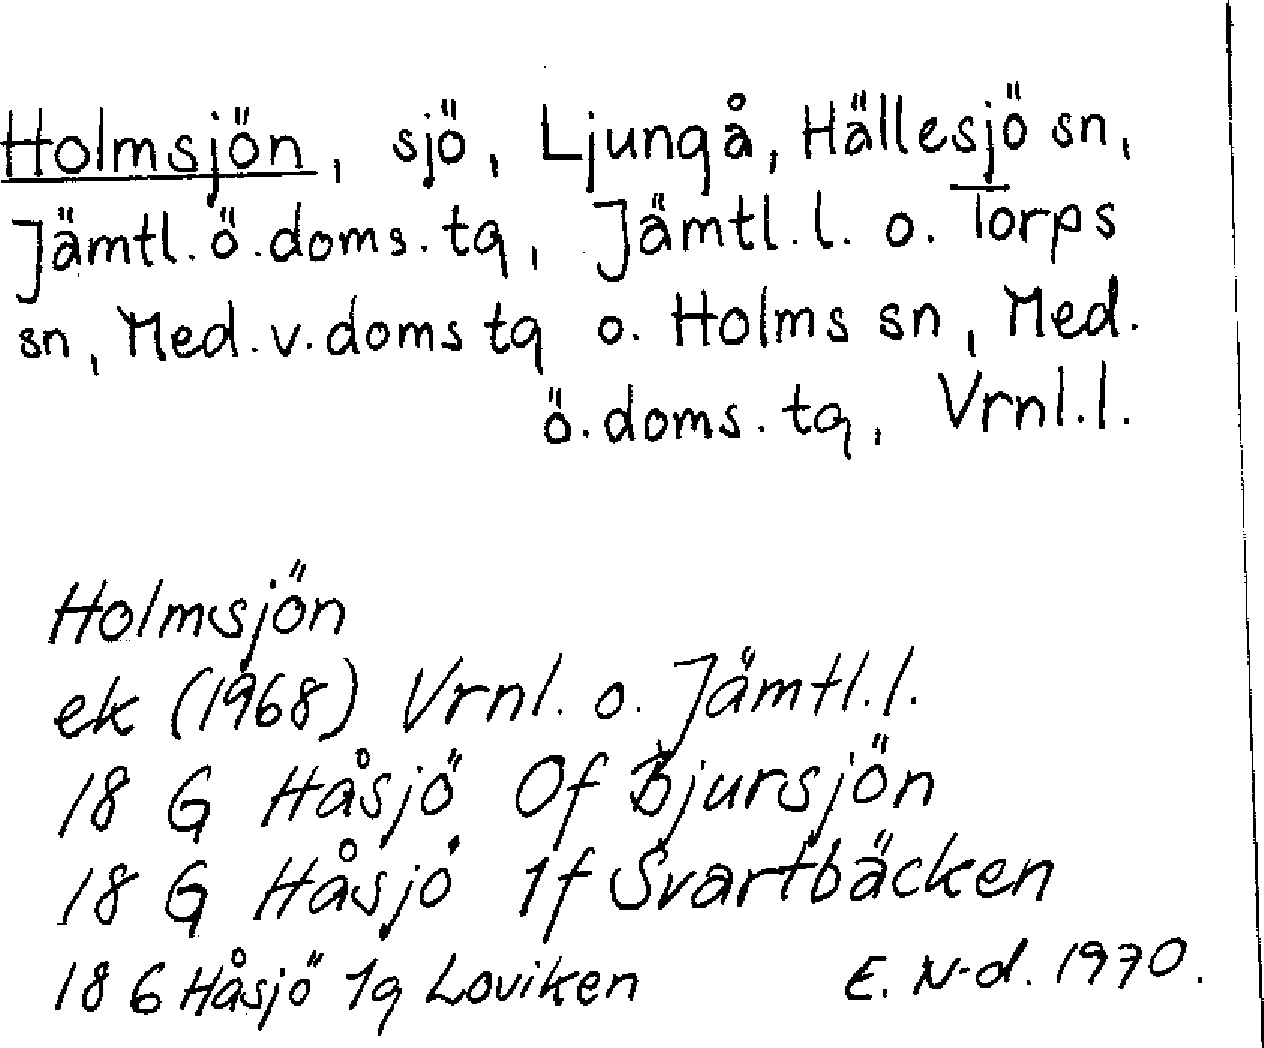 Holmsjön, sjö, Ljungå, Hällesjö sn,
Jämtl. ö. doms. tg, Jämtl. l. o. Torps
sn, Med. v. doms tg o. Holms sn, Med.
ö. doms. tg, Vrnl. l.
Holmsjön
ek (1968) Vrnl. o. Jämtl. l.
18 G Håsjö 0f Bjursjön
18 G Håsjö 1f Svartbäcken
18 G Håsjö 1g Loviken E. N-d. 1970.